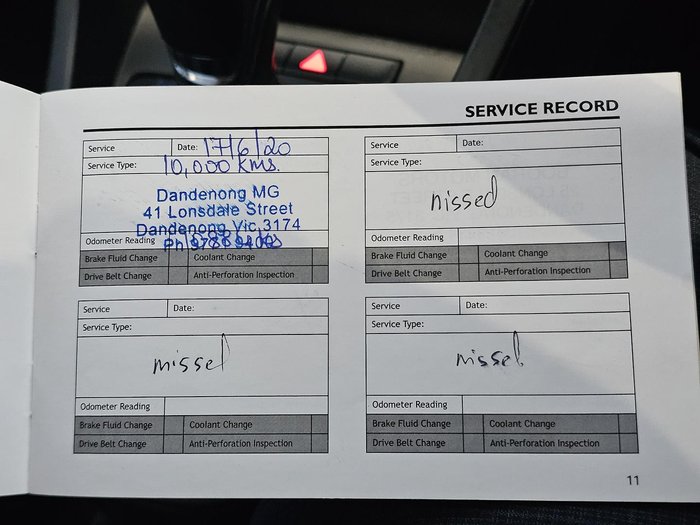 SERVICE RECORD
Service Date: 17/6/20
Service Type: 10,000 Kms.
Dandenong MG
41 Lonsdale Street
Dandenong Vic 3174
Odometer Reading
Ph
Brake Fluid Change Coolant Change
Drive Belt Change Anti-Perforation Inspection
Service Date:
Service Type:
nissed
Odometer Reading
Brake Fluid Change Coolant Change
Drive Belt Change Anti-Perforation Inspection
Service Date:
Service Type:
missed
Odometer Reading
Brake Fluid Change Coolant Change
Drive Belt Change Anti-Perforation Inspection
Service Date:
Service Type:
missed
Odometer Reading
Brake Fluid Change Coolant Change
Drive Belt Change Anti-Perforation Inspection
11